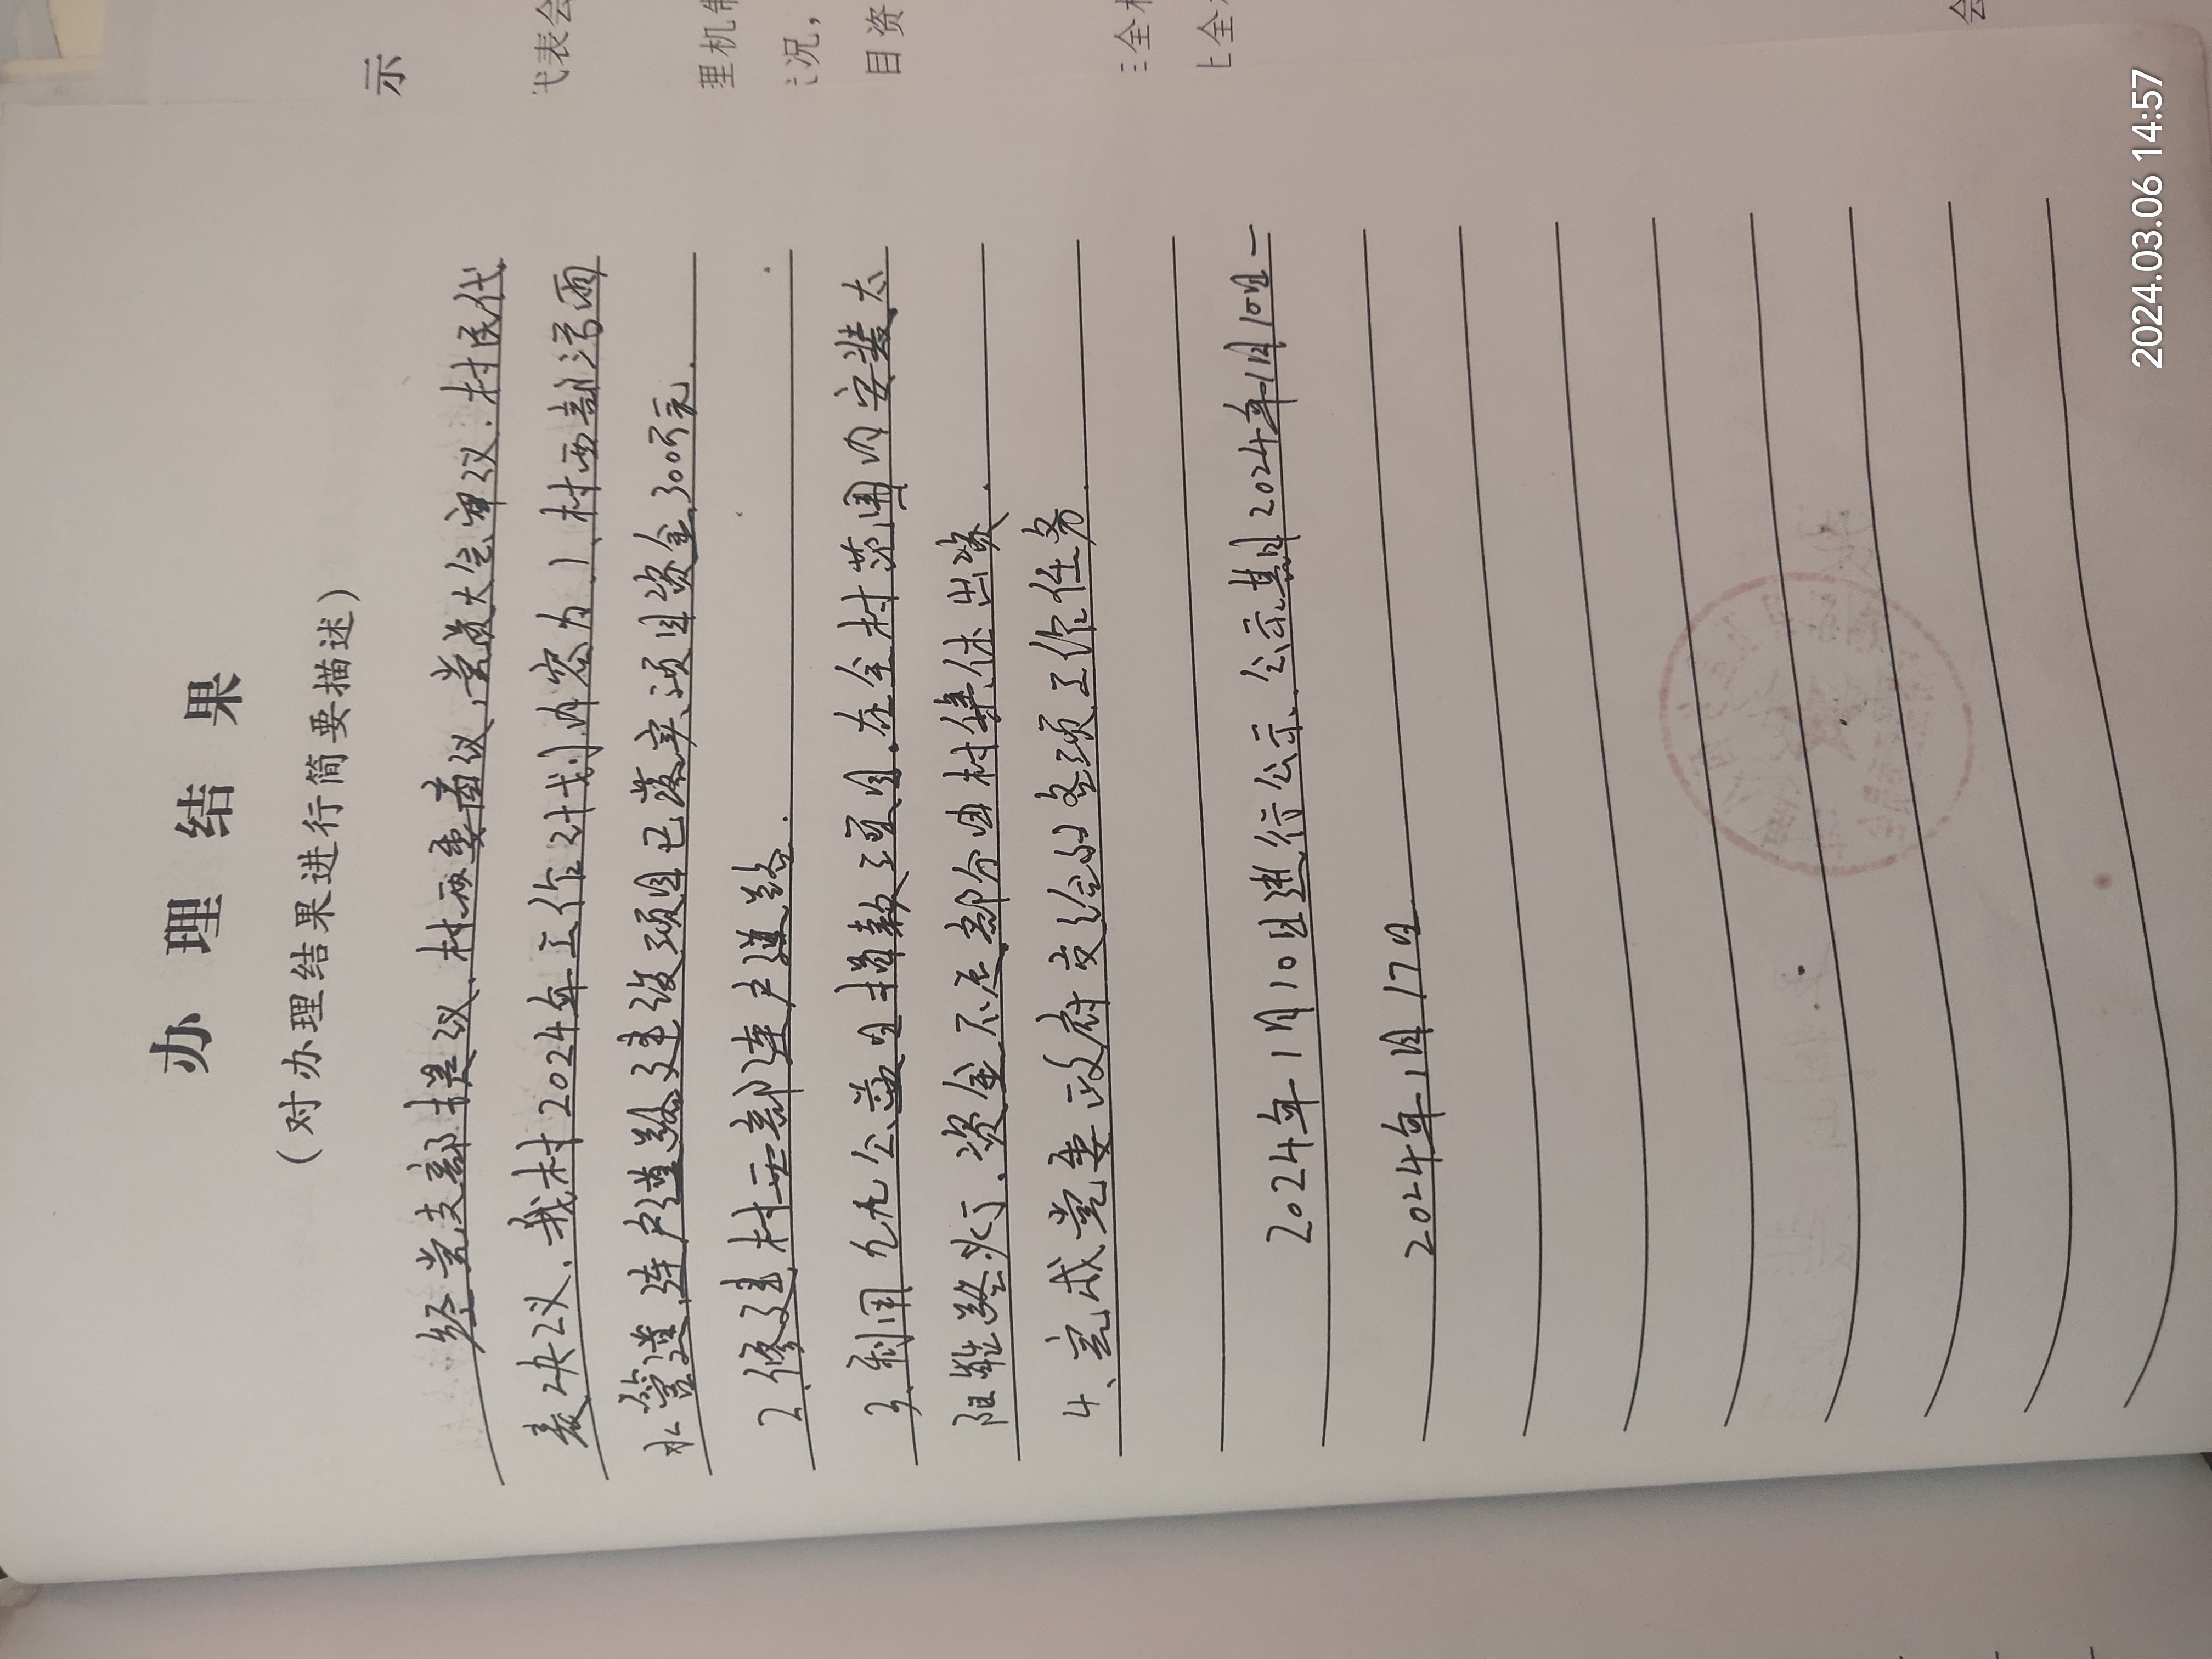 办理结果
（对办理结果进行简要描述）
经党支部提议、村两委商议、党员大会审议、村民代
表决议、我村2024年工作计划内容为：1、村西部污雨
水管道、连户道路建设项目已落实、项目资金300万元.
2、修建村西部连户道路.
3、利用九九公益日捐款项目、在全村范围内安装太
阳能路灯、资金不足部分由村集体出资.
4、完成党委政府交给的各项工作任务.
2024年1月10日进行公示、公示期2024年1月10日—
2024年1月17日
示
代表会
理机制
况，
目资
全村
上全
会
2024.03.06 14:57